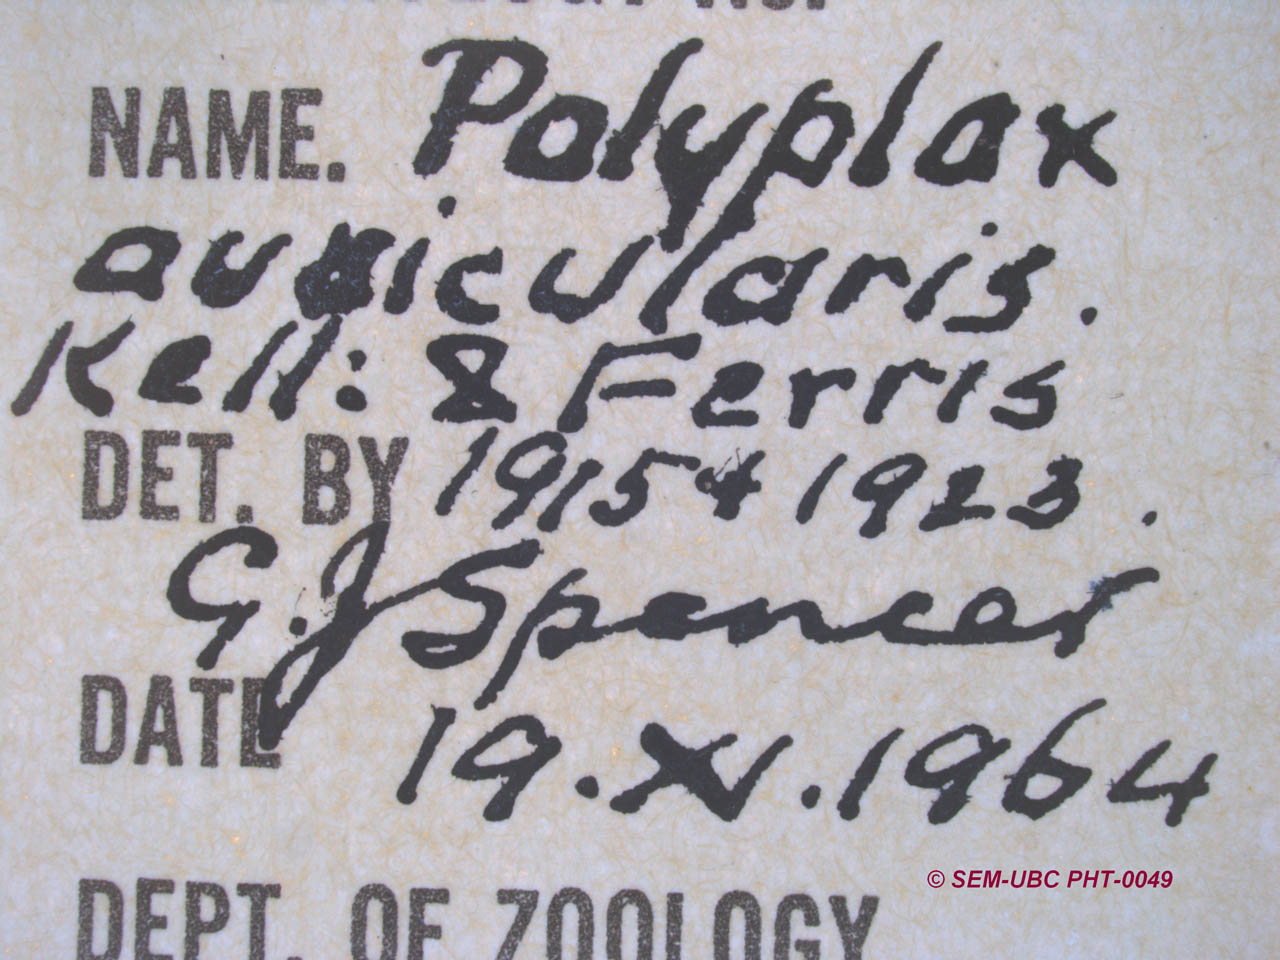 NAME. Polyplax
auricularis.
Kell: & Ferris
DET. BY 1915 & 1923.
G. J Spencer
DATE 19.XI.1964
DEPT. OF ZOOLOGY
© SEM-UBC PHT-0049